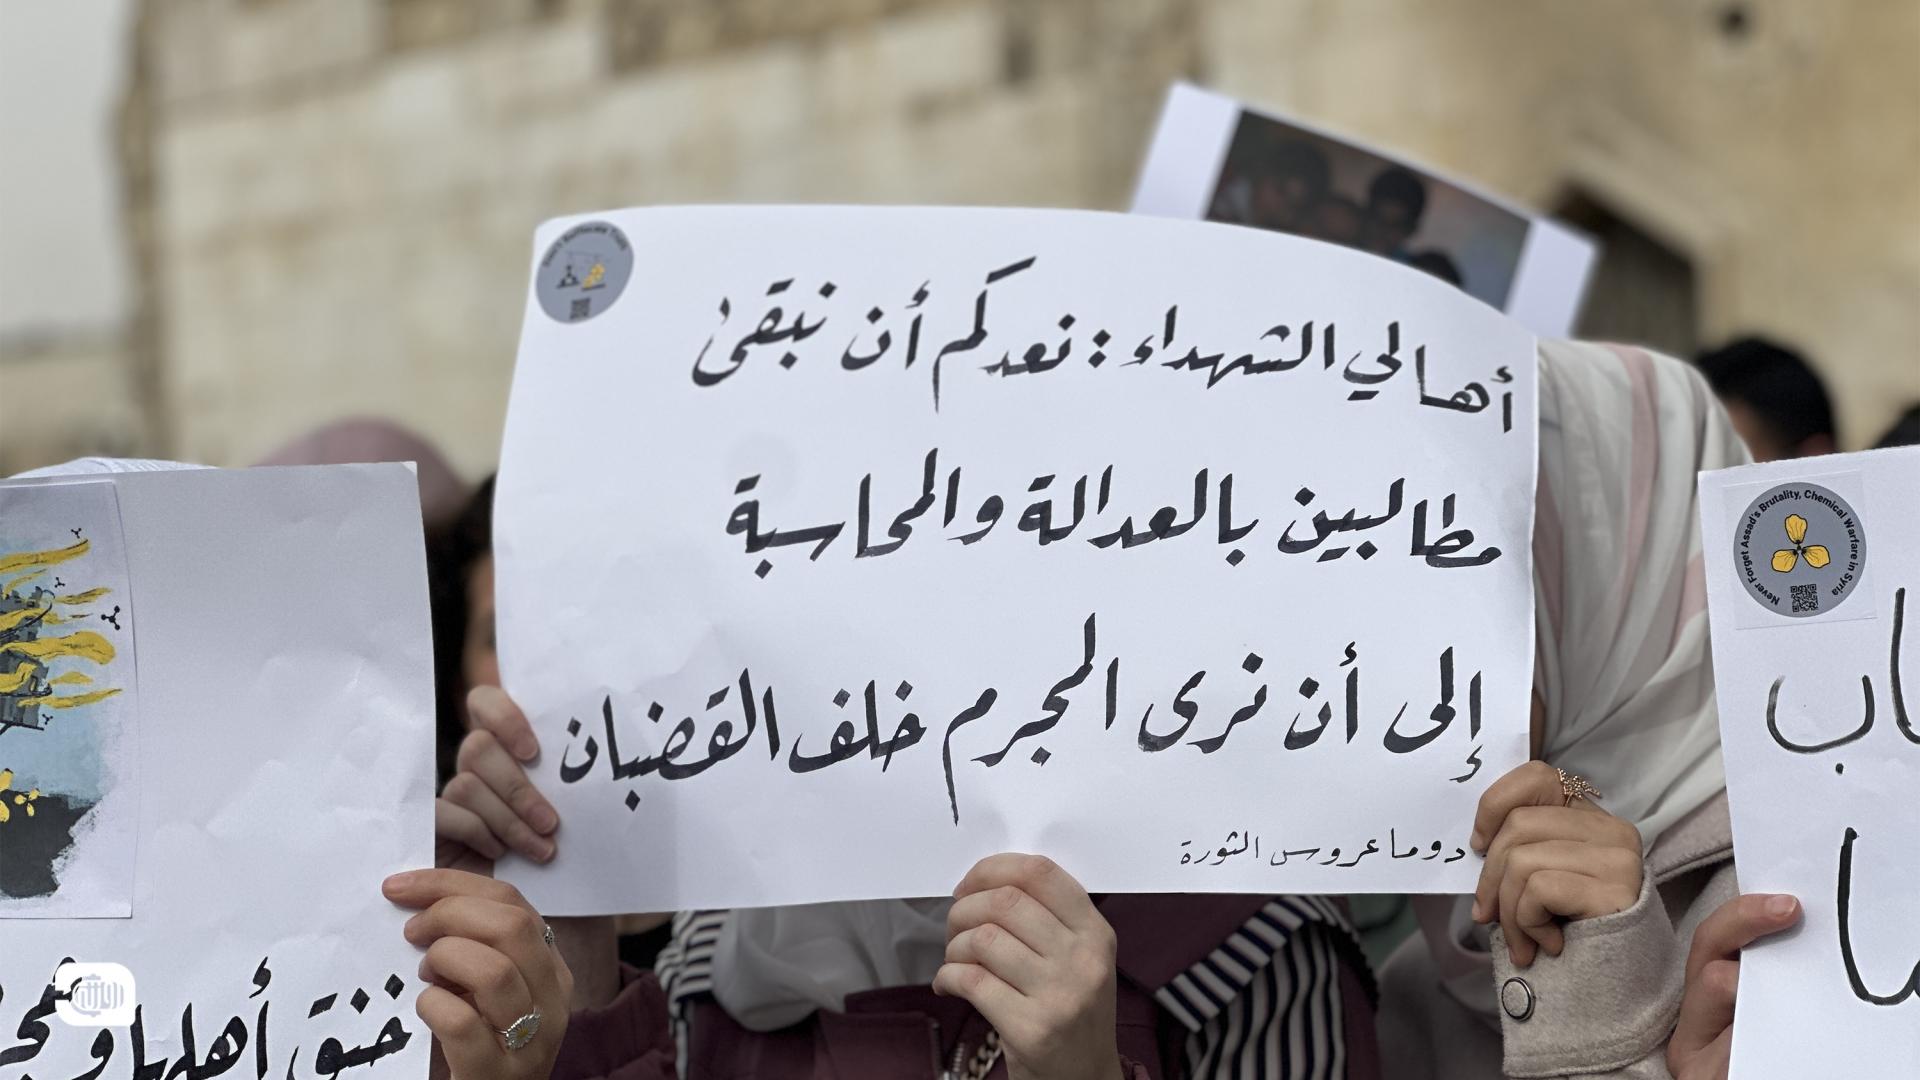 أهالي الشهداء : نعدكم أن نبقى
مطالبين بالعدالة والمحاسبة
إلى أن نرى المجرم خلف القضبان
دوما عروس الثورة
Never Forget Assad's Brutality, Chemical Warfare in Syria
خنق أهلها و